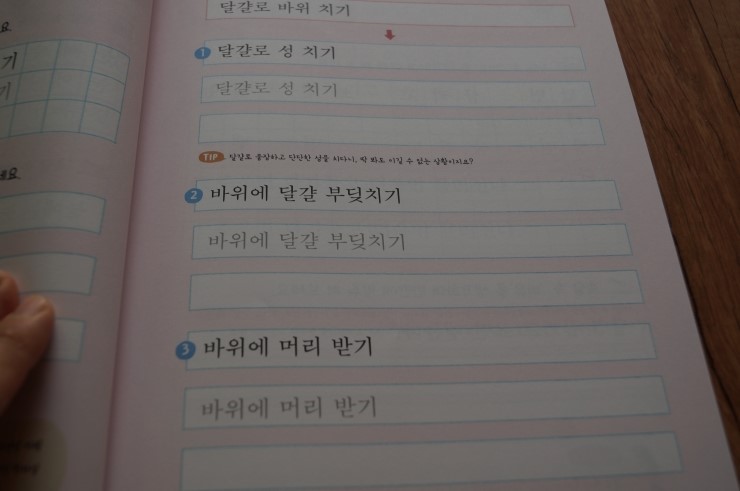 달걀로 바위 치기
1 달걀로 성 치기
달걀로 성 치기
TIP 달걀로 튼튼하고 단단한 성을 치다니, 싹 봐도 이길 수 없는 상황이지요?
2 바위에 달걀 부딪치기
바위에 달걀 부딪치기
3 바위에 머리 받기
바위에 머리 받기
요.
기
기
세요